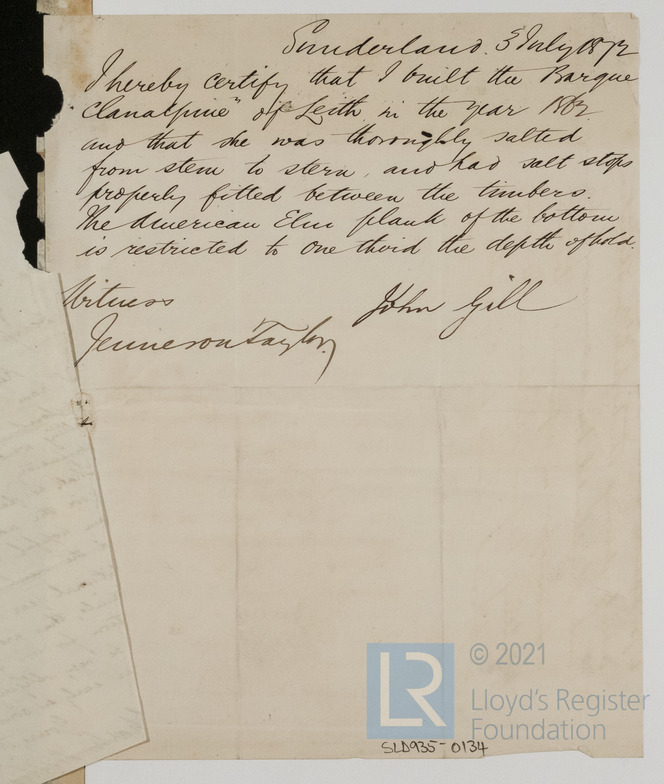 Sunderland. 3 July 1872
I hereby certify that I built the Barque
Clanalpine" of Leith in the year 1862.
and that she was thoroughly salted
from stem to stern, and had salt stops
properly fitted between the timbers.
The American Elm plank of the bottom
is restricted to one third the depth of hold.
Witness
John Gill
Jenneson Taylor.
LR
© 2021
Lloyd's Register
Foundation
SLD935-0134